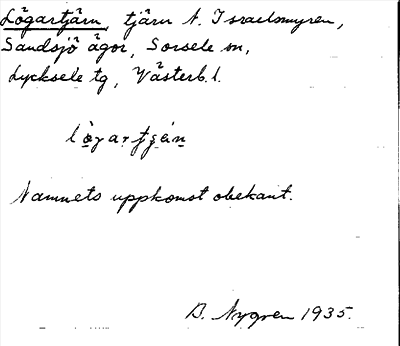 Lögartjärn, tjärn N. Israelsmyren,
Sandsjö ägor, Sorsele sn,
Lycksele tg, Västerb. l.
Namnets uppkomst obekant.
B. Nygren 1935.